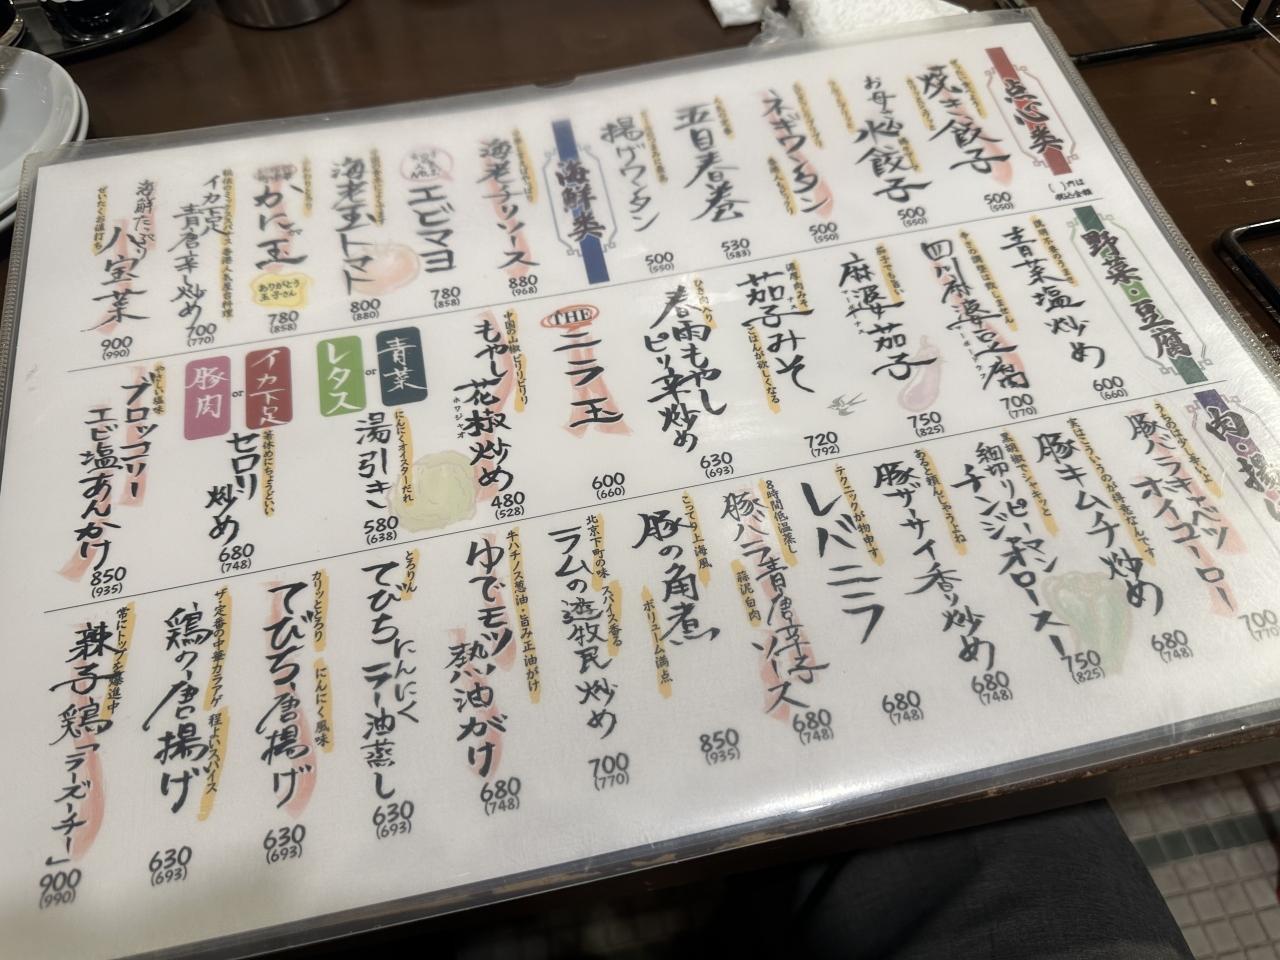 点心类
( )内は
税込金額
焼き餃子
500
(550)
お母さん水餃子
500
(550)
ネギワンタン
500
(550)
五目春巻
530
(583)
揚げワンタン
500
(550)
海鮮类
海老チリソース
880
(968)
エビマヨ
780
(858)
海老玉トマト
800
(880)
かに玉
ありがとう
玉子さん
780
(858)
イカ下足
青唐辛子炒め
700
(770)
海鮮たっぷり
八宝菜
900
(990)
野菜・豆腐
青菜塩炒め
600
(660)
四川麻婆豆腐
700
(770)
麻婆茄子
750
(825)
茄子みそ
ごはんが欲しくなる
720
(792)
春雨もやし
ピリ辛炒め
630
(693)
THE
ニラ玉
600
(660)
中国の山椒ピリピリピリ
もやし花椒炒め
ホワジャオ
480
(528)
青菜
or
レタス
にんにくオイスターだれ
湯引き
580
(638)
イカ下足
or
豚肉
箸休めにちょうどいい
セロリ炒め
680
(748)
やさしい塩味
ブロッコリー
エビ塩あんかけ
850
(935)
豚バラキャベツ
ホイコーロー
700
実はこういうのが得意なんです
豚キムチ炒め
680
(748)
黒胡椒でシャキッと
細切りピーマン
チンジャオロースー
750
(825)
あると頼んじゃうよね
豚ザーサイ香り炒め
680
(748)
テクニックが物申す
レバニラ
680
(748)
8時間低温蒸し
蒜泥白肉
豚バラ青唐辛子ソース
680
(748)
こってり上海風
ボリューム満点
豚の角煮
850
(935)
北京下町の味
スパイス香る
ラムの遊牧民炒め
700
(770)
牛ハチノス葱油・旨み正油がけ
ゆでモツ熱々油がけ
680
(748)
とろりん
てびちにんにく
ラー油蒸し
630
(693)
カリッととろり
にんにく風味
てびち唐揚げ
630
(693)
ザ・定番の中華カラアゲ
程よいスパイス
鶏の唐揚げ
630
(693)
常にトップを爆進中
辣子鶏「ラーズーチー」
900
(990)